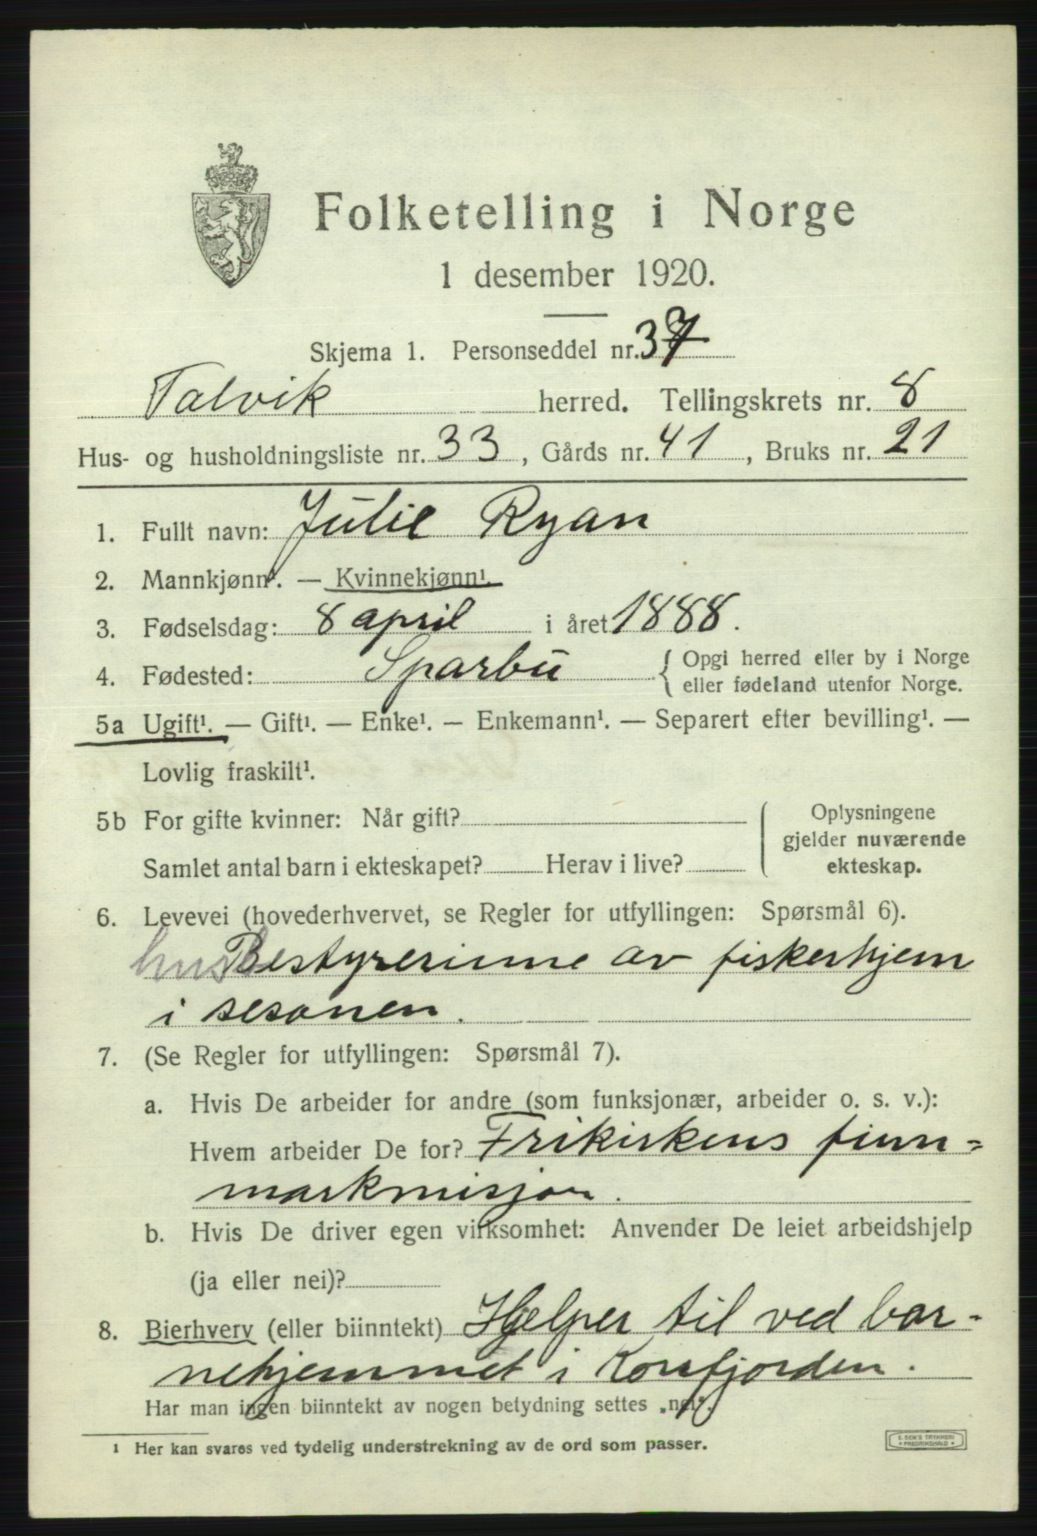 Folketelling i Norge
1 desember 1920.
Skjema 1. Personseddel nr. 37
Talvik herred. Tellingskrets nr. 8
Hus- og husholdningsliste nr. 33, Gårds nr. 41, Bruks nr. 21
1. Fullt navn: Julie Ryan
2. Mannkjønn¹. — Kvinnekjønn¹.
3. Fødselsdag: 8 april i året 1888.
4. Fødested: Sparbu { Opgi herred eller by i Norge
eller fødeland utenfor Norge.
5a Ugift¹. — Gift¹. — Enke¹. — Enkemann¹. — Separert efter bevilling¹. —
Lovlig fraskilt¹.
5b For gifte kvinner: Når gift?
Samlet antal barn i ekteskapet? Herav i live?
Oplysningene
gjelder nuværende
ekteskap.
6. Levevei (hovederhvervet, se Regler for utfyllingen: Spørsmål 6).
Bestyrerinne av fiskerhjem
i sesonen.
7. (Se Regler for utfyllingen: Spørsmål 7).
a. Hvis De arbeider for andre (som funksjonær, arbeider o. s. v.):
Hvem arbeider De for? Frikirkens finn=
markmisjon.
b. Hvis De driver egen virksomhet: Anvender De leiet arbeidshjelp
(ja eller nei)?
8. Bierhverv (eller biinntekt) Hjelper til ved bar-
nehjemmet i Korsfjorden.
Har man ingen biinntekt av nogen betydning settes „nei“.
¹ Her kan svares ved tydelig understrekning av de ord som passer.